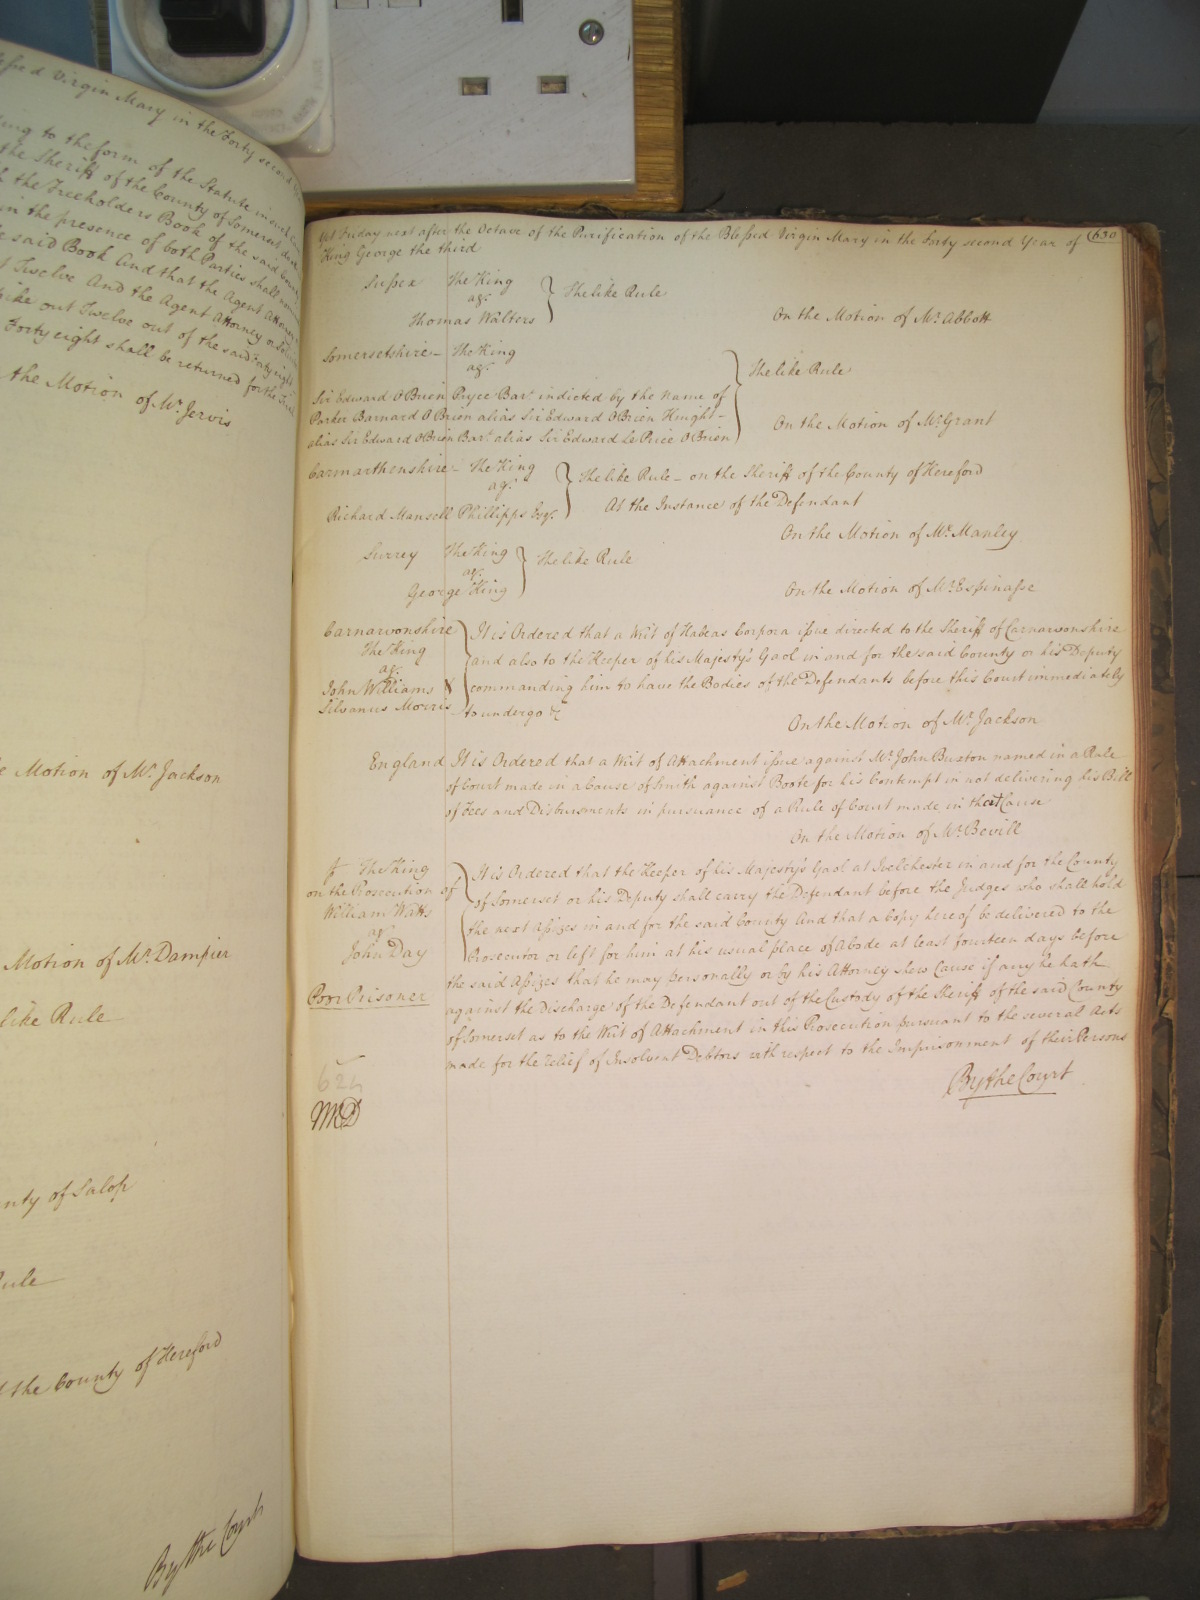 ssed Virgin Mary in the Forty second
ing to the form of the Statute in such
the Sheriff of the County of Somerset
the Freeholders Book of the said County
in the presence of both Parties shall
said Book And that the Agent Attorney
Twelve And the Agent Attorney or
strike out Twelve out of the said forty eight
Forty eight shall be returned for the
the Motion of Mr. Jervis
Motion of Mr. Jackson
Motion of Mr. Dampier
like Rule
nty of Salop
Rule
the County of Hereford
By the Court
Yet Friday next after the Octave of the Purification of the Blessed Virgin Mary in the Forty second Year of
630
King George the third
Sussex The King
agt.
Thomas Walters
The like Rule
On the Motion of Mr. Abbott
Somersetshire – The King
agt.
Sir Edward O Brien Pryce Bart. indicted by the name of
Parker Barnard O Brien alias Sir Edward O Brien Knight –
alias Sir Edward O Brien Bart. alias Sir Edward Le Price O Brien
The like Rule
On the Motion of Mr. Grant
Carmarthenshire – The King
agt.
Richard Mansell Phillipps Esqr.
The like Rule – on the Sheriff of the County of Hereford
At the Instance of the Defendant
On the Motion of Mr. Manley
Surrey The King
agt.
George King
The like Rule
On the Motion of Mr. Espinasse
Carnarvonshire
The King
agt.
John Williams &
Silvanus Morris
It is Ordered that a Writ of Habeas Corpora issue directed to the Sheriff of Carnarvonshire
and also to the Keeper of his Majesty's Gaol in and for the said County or his Deputy
commanding him to have the Bodies of the Defendants before this Court immediately
to undergo &c
On the Motion of Mr. Jackson
England It is Ordered that a Writ of Attachment issue against Mr. John Buxton named in a Rule
of Court made in a Cause of Smith against Boote for his Contempt in not delivering his Bill
of Fees and Disbursments in pursuance of a Rule of Court made in that Cause
On the Motion of Mr. Bevill
The King
on the Prosecution of
William Watts
agt.
John Day
Poor Prisoner
It is Ordered that the Keeper of his Majesty's Gaol at Ivelchester in and for the County
of Somerset or his Deputy shall carry the Defendant before the Judges who shall hold
the next Assizes in and for the said County And that a Copy hereof be delivered to the
Prosecutor or left for him at his usual place of Abode at least fourteen days before
the said Assizes that he may personally or by his Attorney shew Cause if any he hath
against the Discharge of the Defendant out of the Custody of the Sheriff of the said County
of Somerset as to the Writ of Attachment in this Prosecution pursuant to the several Acts
made for the relief of Insolvent Debtors with respect to the Imprisonment of their Persons
By the Court